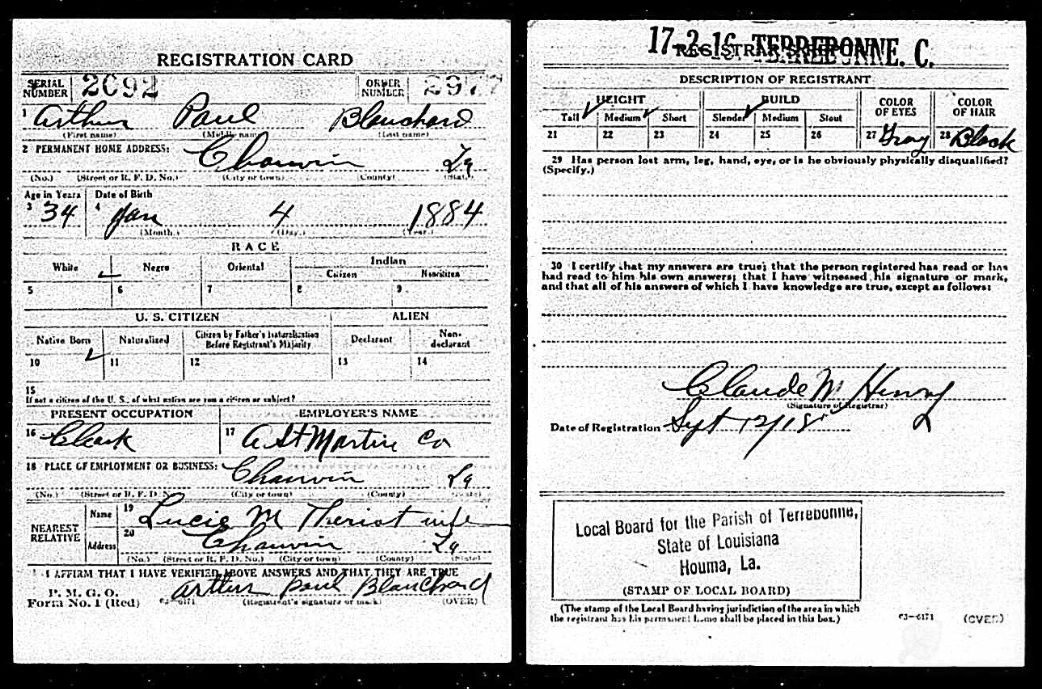 REGISTRATION CARD
SERIAL NUMBER 2092 ORDER NUMBER 2977
1 Arthur Paul Blanchard
(First name) (Middle name) (Last name)
2 PERMANENT HOME ADDRESS: Chauvin La
(No.) (Street or R. F. D. No.) (City or town) (County) (State)
Age in Years Date of Birth
3 34 4 Jan 4 1884
(Month.) (Day.) (Year.)
RACE
White Negro Oriental Indian
Citizen Noncitizen
5 6 7 8 9
U. S. CITIZEN ALIEN
Native Born Naturalized Citizen by Father's Naturalization Before Registrant's Majority Declarant Non-declarant
10 11 12 13 14
15
If not a citizen of the U. S., of what nation are you a citizen or subject?
PRESENT OCCUPATION EMPLOYER'S NAME
16 Cleark 17 A St Martin Co
18 PLACE OF EMPLOYMENT OR BUSINESS: Chauvin La
(No.) (Street or R. F. D. No.) (City or town) (County) (State)
NEAREST RELATIVE Name 19 Lucie M Theriot wife
Address 20 Chauvin La
(No.) (Street or R. F. D. No.) (City or town) (County) (State)
I AFFIRM THAT I HAVE VERIFIED ABOVE ANSWERS AND THAT THEY ARE TRUE
P. M. G. O.
Form No. 1 (Red) 03-6171 Arthur Paul Blanchard
(Registrant's signature or mark) (OVER)
17-2-16 TERREBONNE. C.
DESCRIPTION OF REGISTRANT
HEIGHT BUILD COLOR OF EYES COLOR OF HAIR
Tall Medium Short Slender Medium Stout
21 22 23 24 25 26 27 Gray 28 Black
29 Has person lost arm, leg, hand, eye, or is he obviously physically disqualified?
(Specify.)
30 I certify that my answers are true; that the person registered has read or has
had read to him his own answers; that I have witnessed his signature or mark,
and that all of his answers of which I have knowledge are true, except as follows:
Claude M Henry
(Signature of Registrar)
Date of Registration Sept 12/18
Local Board for the Parish of Terrebonne,
State of Louisiana
Houma, La.
(STAMP OF LOCAL BOARD)
(The stamp of the Local Board having jurisdiction of the area in which
the registrant has his permanent home shall be placed in this box.)
03-6171 (OVER)